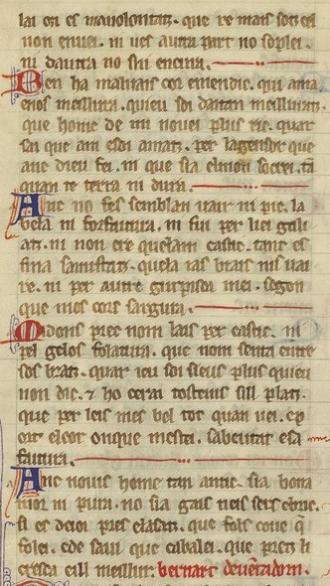 lai on es mouolontatz. que re mais sotz cel
non enuei. ni ues autra part no soplei.
ni dautra no sui encura.
Ben ha maluais cor emendic. qui ama
enos meillura. quieu soi daitan meilluratz.
que home de mi nouei plus ric. quar
sai que am esoi amatz. per lagensor que
anc dieu fei. ni que sia elmon so crei. tā
quan te terra ni dura.
Anc no fes semblan uair ni pic. la
bela ni forfaitura. ni fui per liei gali
atz. ni non cre quelam castic. tant es
fina samistatz. quela ias brais nis uai
re. ni per autre guirpisca mei. segon
que mos cors sargura.
Midons prec nom lais per castic. ni
pel gelos folatura. que nom senta entre
sos bratz. quar ieu soi sieus plus quieu
non dic. & ho cerai tostems sill platz.
que per leis mes bel tot quan uei.
onque mestei. sabentat esa
faitura.
Anc nouis home tan antic. sia bona
mor ni pura. no sia gais neis sers
si es deior pres elasatz. que fols coue q̄
folei. ede saui que cabalei. que pretz li
cresca eill meillur. bernart deuētadorn.